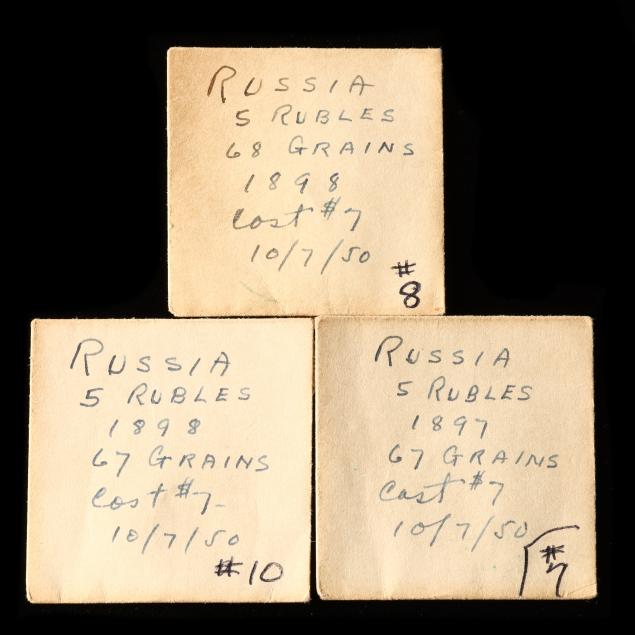 RUSSIA
5 RUBLES
68 GRAINS
1898
Cost #7
10/7/50
#8
RUSSIA
5 RUBLES
1898
67 GRAINS
Cost #7-
10/7/50
#10
RUSSIA
5 RUBLES
1897
67 GRAINS
Cost #7
10/7/50
#7